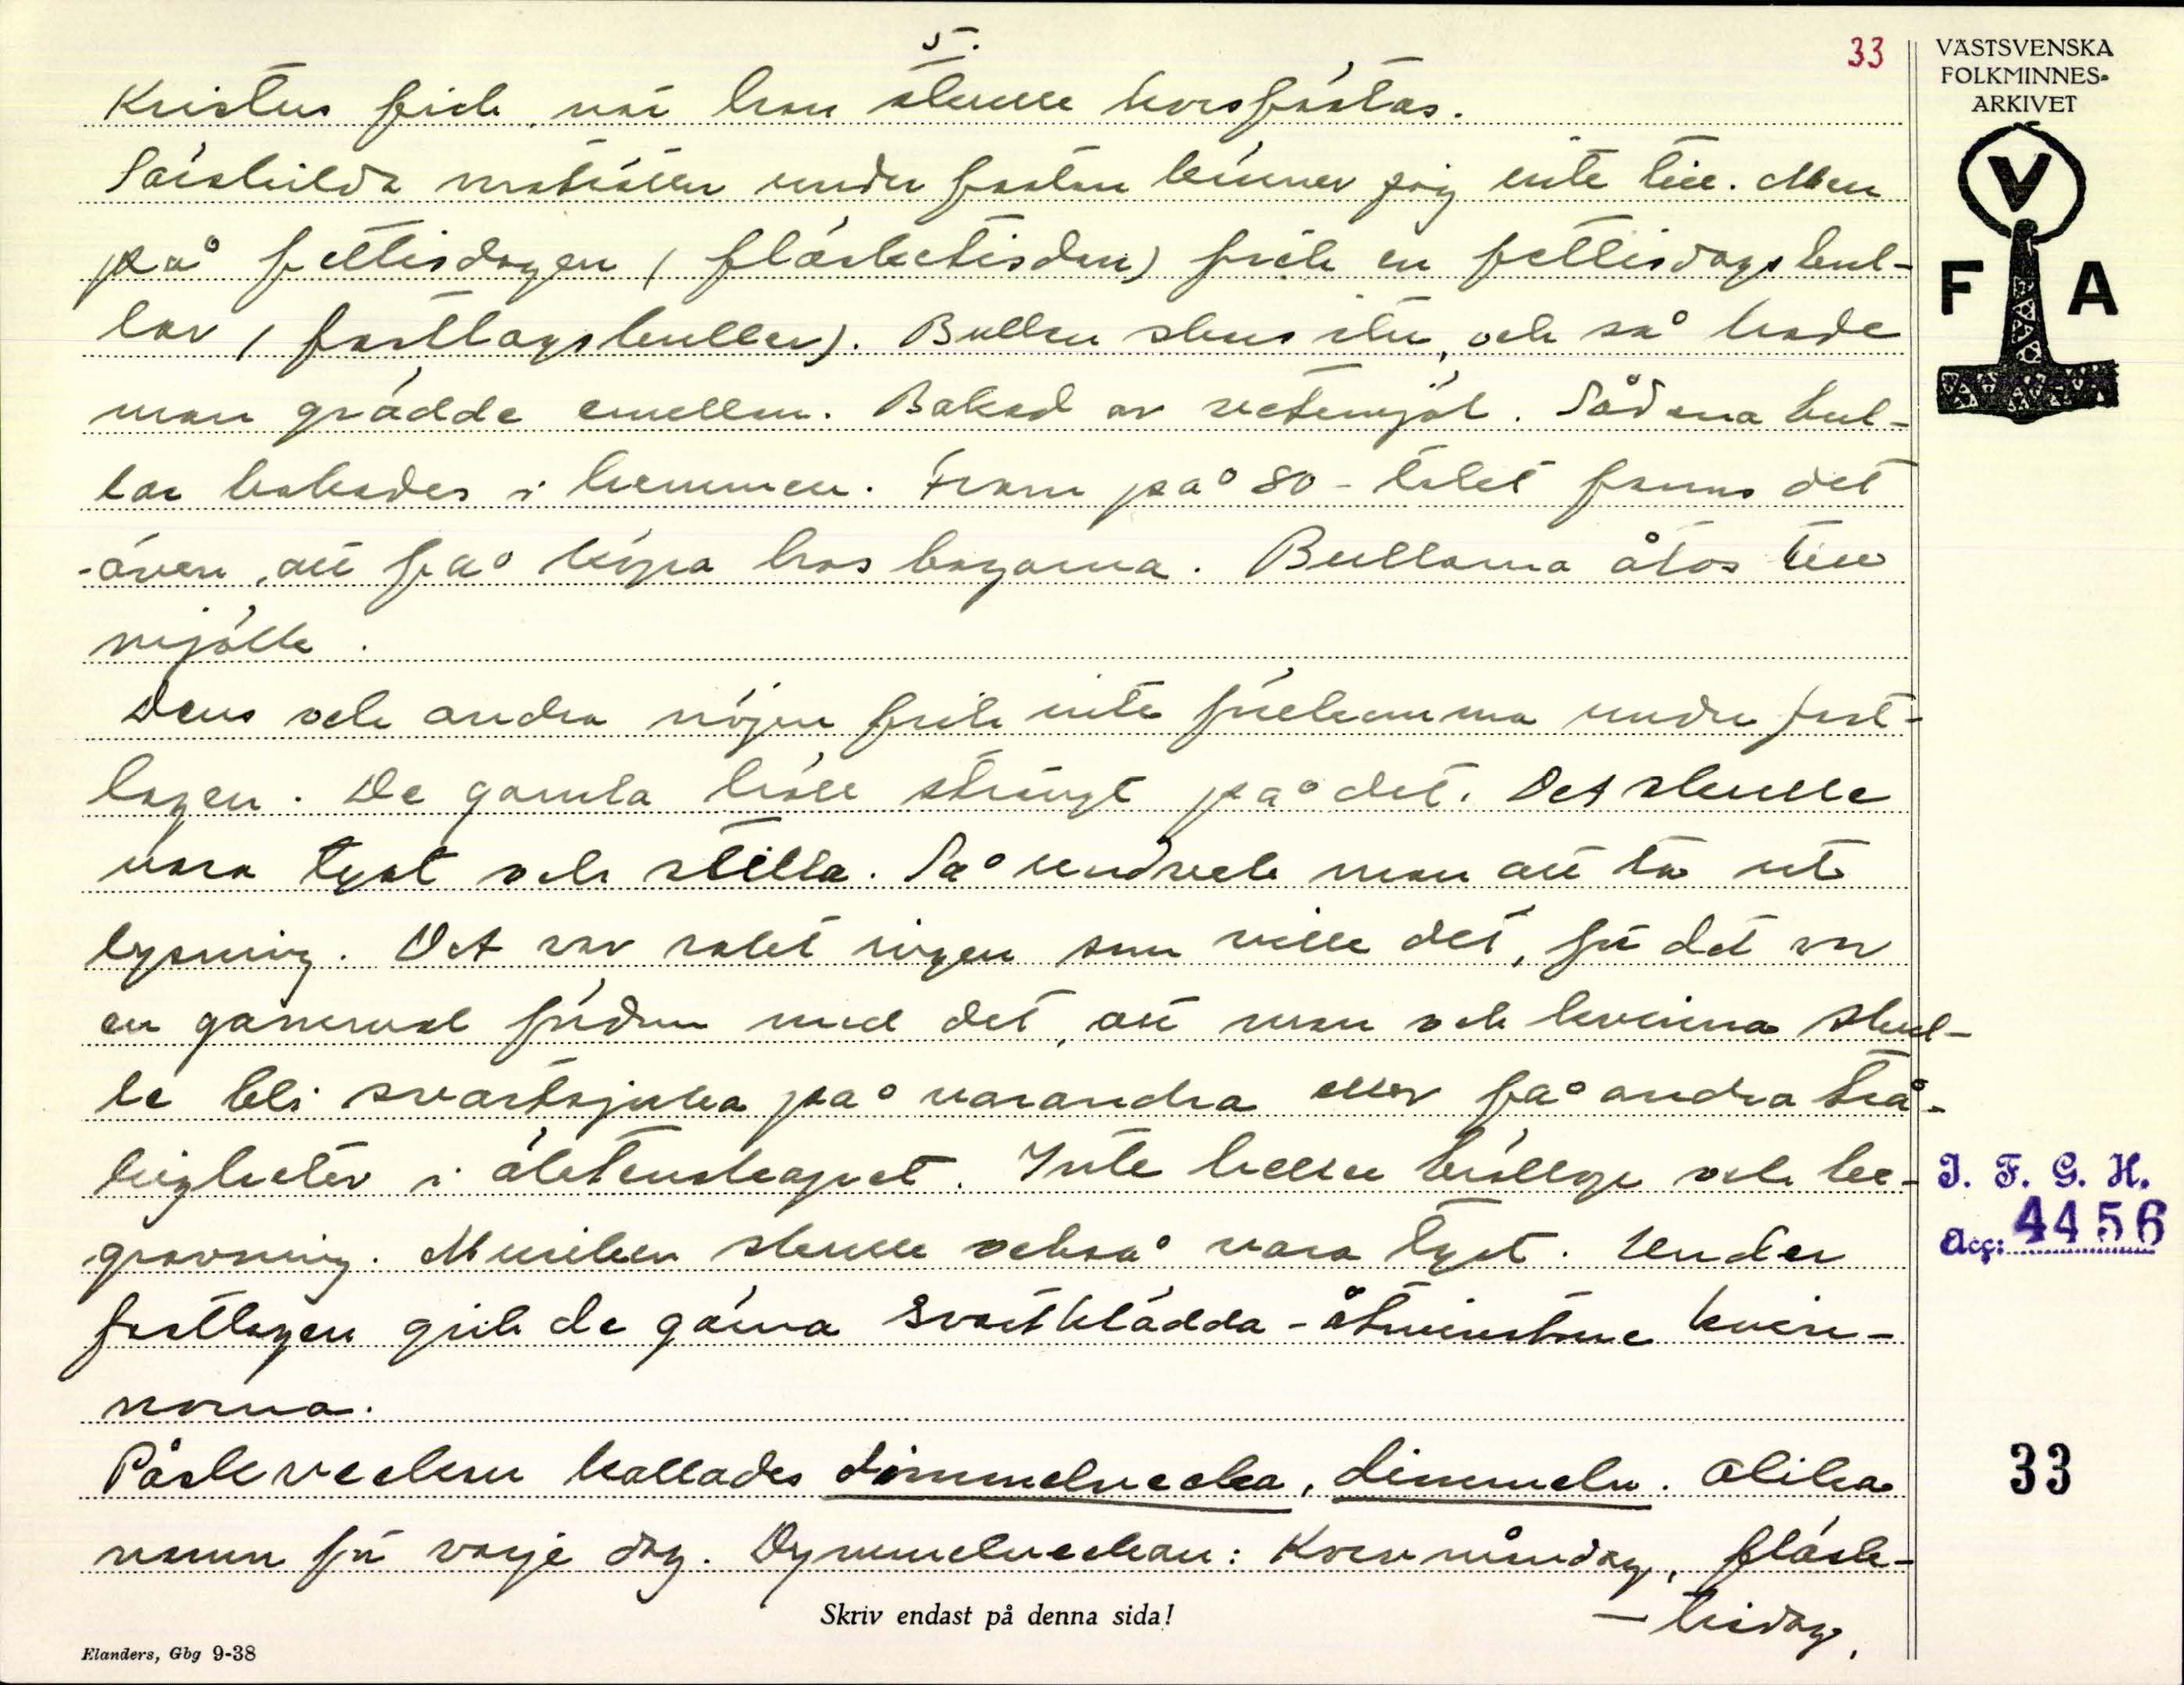 5.
33
Kristus fick, när han skulle korsfästas.
Särskilda maträtter under fastan känner jag inte till. Men
på fettisdagen (fläsketisdan) fick en fettisdagsbul-
lar (fastlagsbullar). Bullen skars itu, och så hade
man grädde emellan. Bakad av vetemjöl. Sådana bul-
lar bakades i hemmen. Fram på 80-talet fanns det
även, att få köpa hos bagarna. Bullarna åtos till
mjölk.
Dans och andra nöjen fick inte förekomma under fast-
lagen. De gamla höll strängt på det. Det skulle
vara tyst och stilla. Så undvek man att ta ut
lysning. Det var rakt ingen som ville det, för det var
en gammal fördom med det, att man och kvinna skul-
le bli svartsjuka på varandra eller få andra trå-
kigheter i äktenskapet. Inte heller bröllop och be-
gravning. Musiken skulle också vara tyst. Under
fastlagen gick de gärna svartklädda - åtminstone kvin-
norna.
Påskveckan kallades dimmelvecka, dimmeln. Olika
namn för varje dag. Dymmelveckan: Korvmåndag, fläsk-
- tisdag,
Skriv endast på denna sida!
Elanders, Gbg 9-38
VÄSTSVENSKA
FOLKMINNES-
ARKIVET
V
F A
I. F. G. H.
Acc: 4456
33